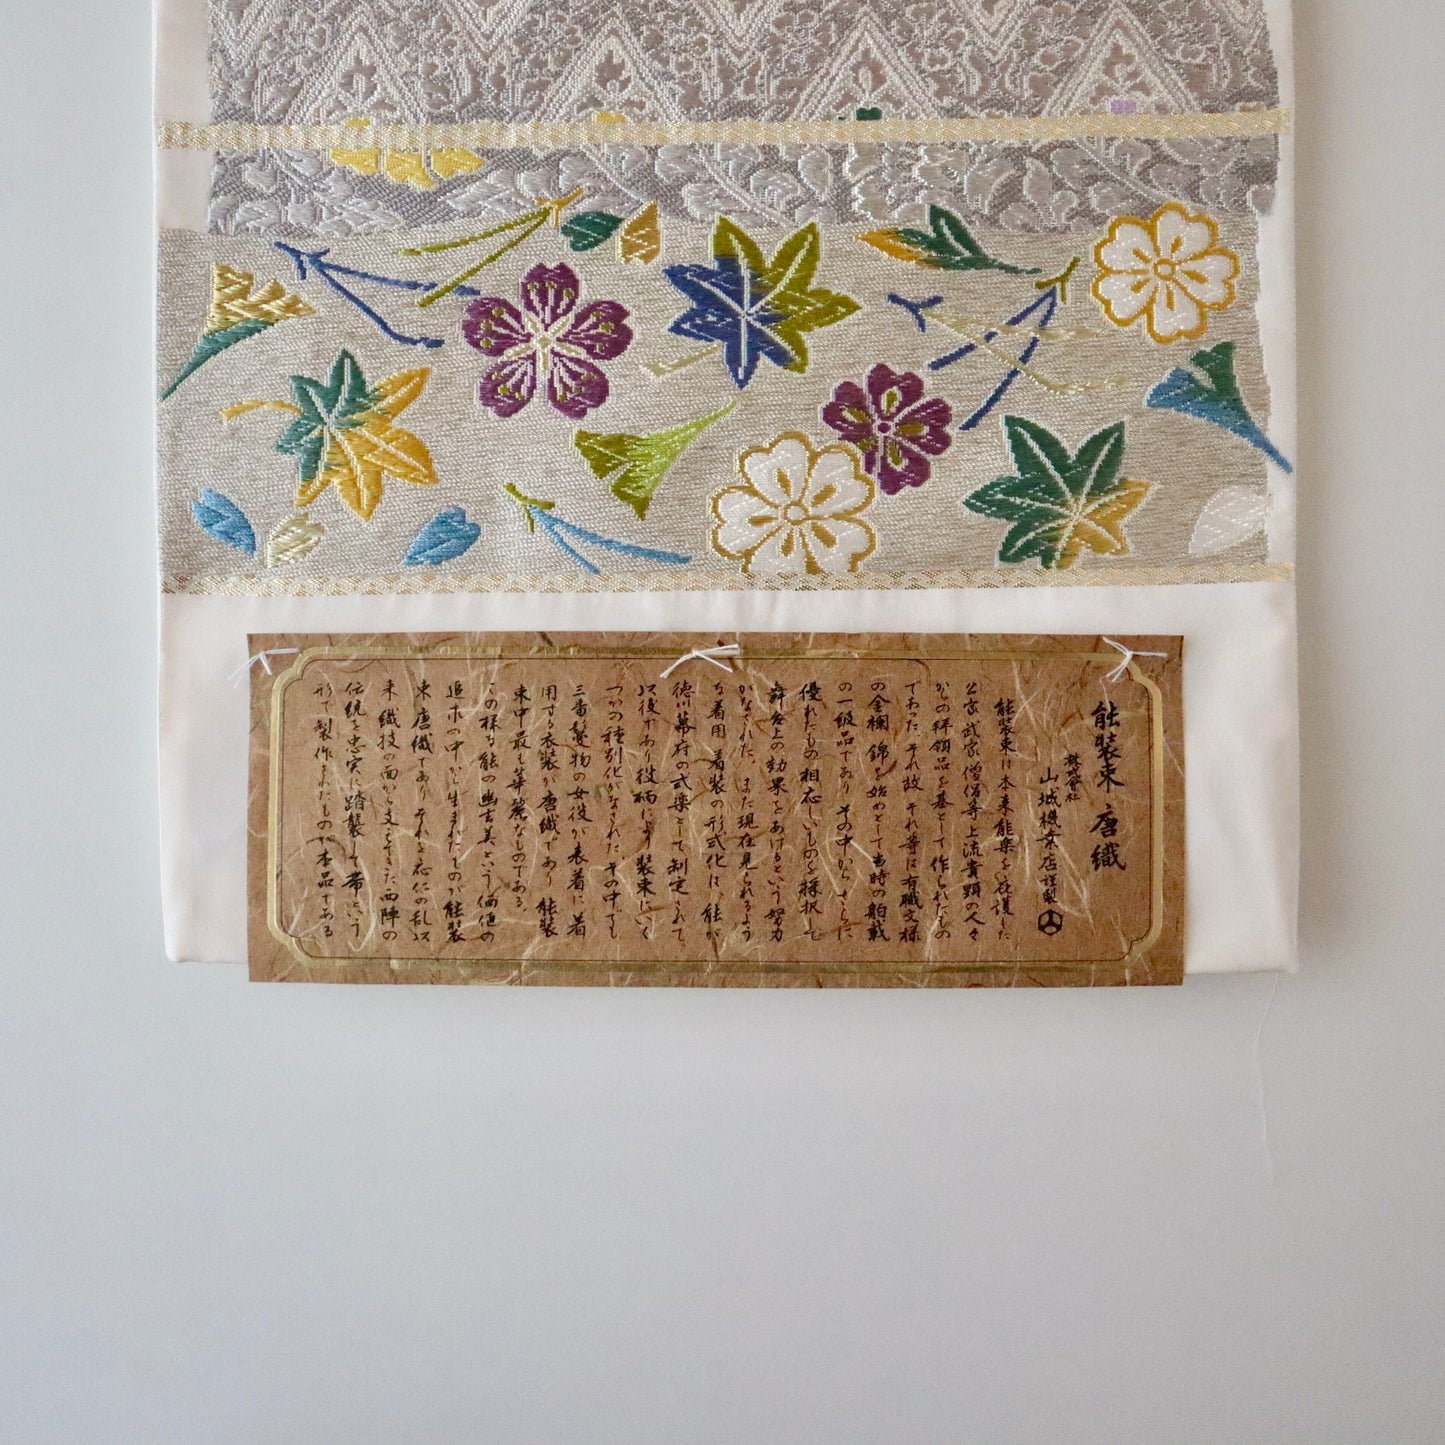 能装束 唐織
株式会社
山城機業店謹製
能装束は本来能楽を庇護した
公家 武家 僧侶等上流貴顕の人々
からの拝領品を基として作られたもの
であった、それ故 それ等は有職文様
の金襴 錦を始めとして当時の舶載
の一級品であり その中から さらに
優れたもの 相応しいものを採択して
舞台上の効果をあげるという努力
がなされた、また現在見られるよう
な着用 着装の形式化は、能が
徳川幕府の式楽として制定されて
以後であり役柄により装束にいく
つかの種別化がなされた、その中でも
三番鬘物の女役が表着に着
用する衣装が唐織であり 能装
束中最も華麗なものである、
この様な能の幽玄美という価値の
追求の中から生まれたものが能装
束 唐織であり それを応仁の乱以
来 織技の面から支えてきた西陣の
伝統を忠実に踏襲して帯という
形で製作されたものが本品である